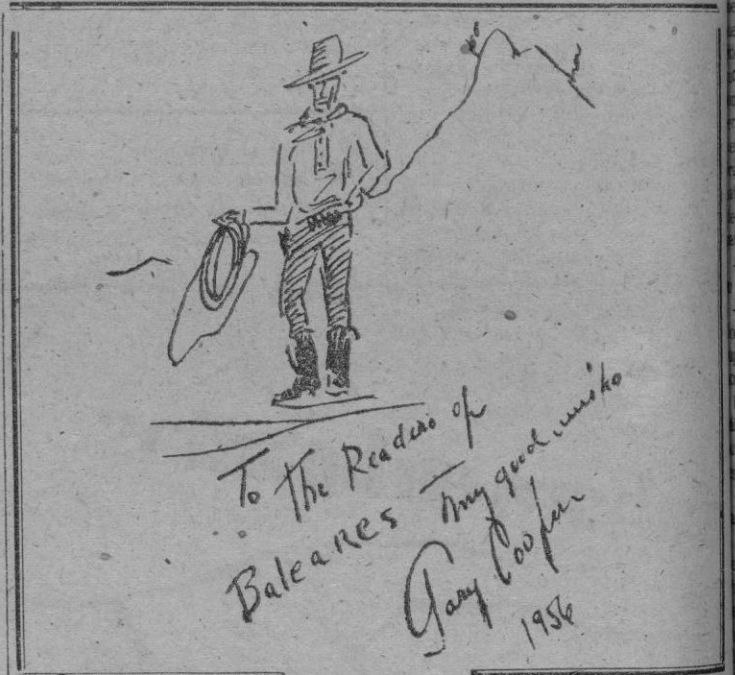 To The Readers of
Baleares – my good wishes
Gary Cooper
1956